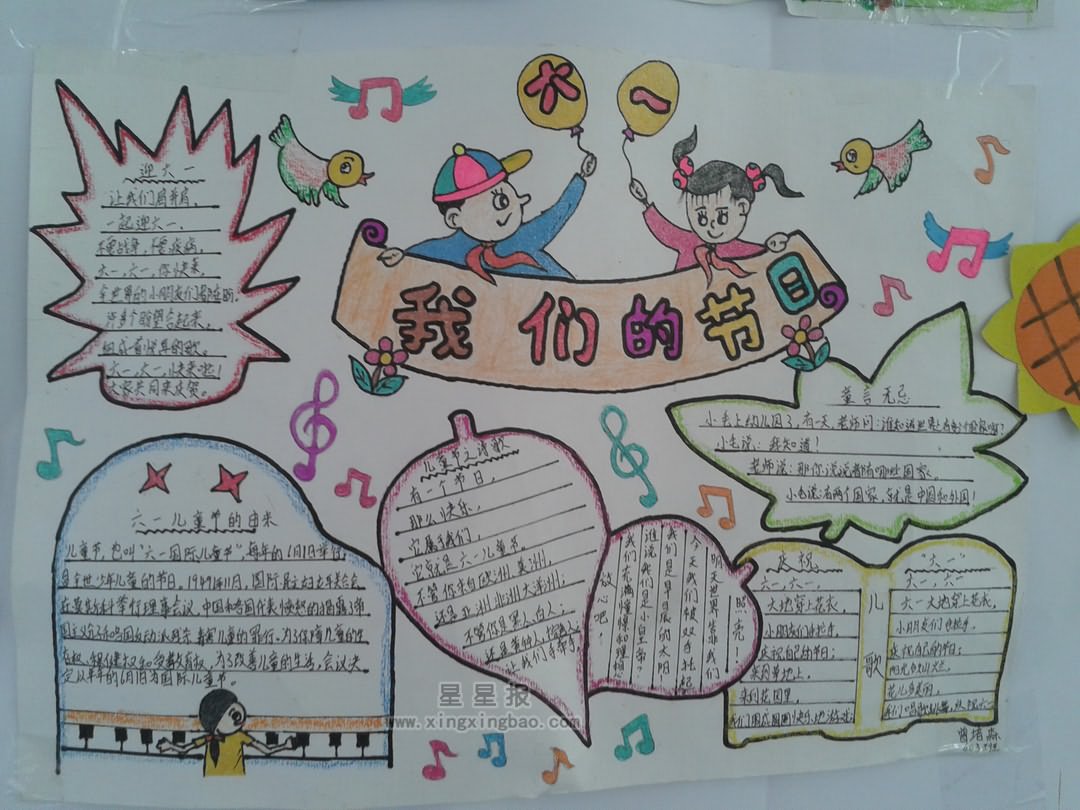 六一
我们的节日
迎六一
让我们肩并肩，
一起迎六一。
不要战争，不要疾病，
六一，六一，你快来，
全世界的小朋友们都在盼。
许多个盼望合起来，
组成首快乐的歌。
六一，六一，快来啦！
大家共同来庆贺。
童言无忌
小毛上幼儿园了，有一天，老师问：谁知道世界上有多少个国家啊？
小毛说：我知道！
老师说：那你说说都有哪些国家。
小毛说：有两个国家，就是中国和外国！
六一儿童节的由来
儿童节，也叫“六一国际儿童节”，每年的6月1日举行，
是全世界少年儿童的节日，1949年11月，国际民主妇女联合会
在莫斯科举行理事会议，中国和各国代表愤怒的揭露了帝
国主义分子和各国反动派残杀毒害儿童的罪行。为了保障儿童的生
存权、保健权和受教育权，为了改善儿童的生活，会议决
定以每年的6月1日为国际儿童节。
儿童节之诗歌
有一个节日，
那么快乐，
它属于我们，
它就是六一儿童节。
不管你来自欧洲、美洲；
还是亚洲、非洲、大洋洲；
不管你是黑人、白人；
让我们手携手，
明天世界靠我们
今天我们被双手托起
我们是早晨的太阳
谁说我们是小皇帝
我们充满憧憬和理想
放心吧！
庆祝
六一，六一，
大地穿上花衣，
小朋友们手拉手，
庆祝自己的节日；
来到草地上，
来到花园里，
我们围成圆圈快乐地游戏。
儿歌
“六一”
六一，六一，
六一大地穿上花衣，
小朋友们手拉手，
庆祝自己的节日；
阳光灿烂，
花儿多美丽，
星星报
www.xingxingbao.com